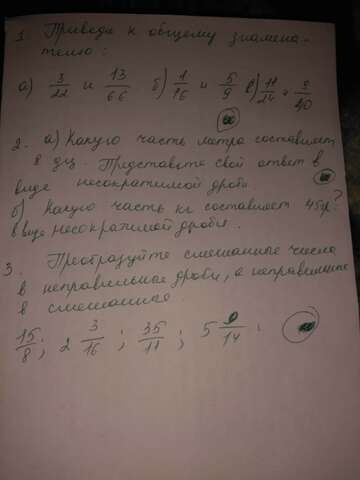 1 Приведи к общему знамена-
телю:
а) 3/22 и 13/66 б) 1/16 и 5/9 в) 11/24 и 9/40
2. а) Какую часть метра составляет
8 дц. Представьте свой ответ в
виде несократимой дроби
б) Какую часть кг составляет 45гр?
в виде несократимой дробью.
3. Преобразуйте смешанные числа
в неправильные дроби, а неправильные
в смешанные.
15/8; 2 3/16; 35/11; 5 9/14.